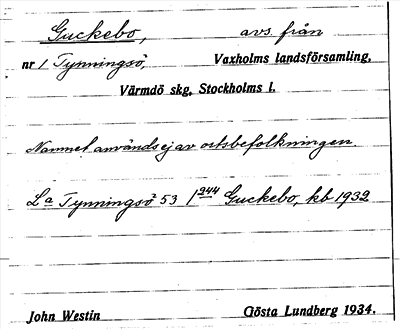 Guckebo, avs. från
nr 1 Tynningsö, Vaxholms landsförsamling,
Värmdö skg, Stockholms l.
Namnet användes ej av ortsbefolkningen.
La Tynningsö 53 1/244 Guckebo, kb 1932
John Westin Gösta Lundberg 1934.